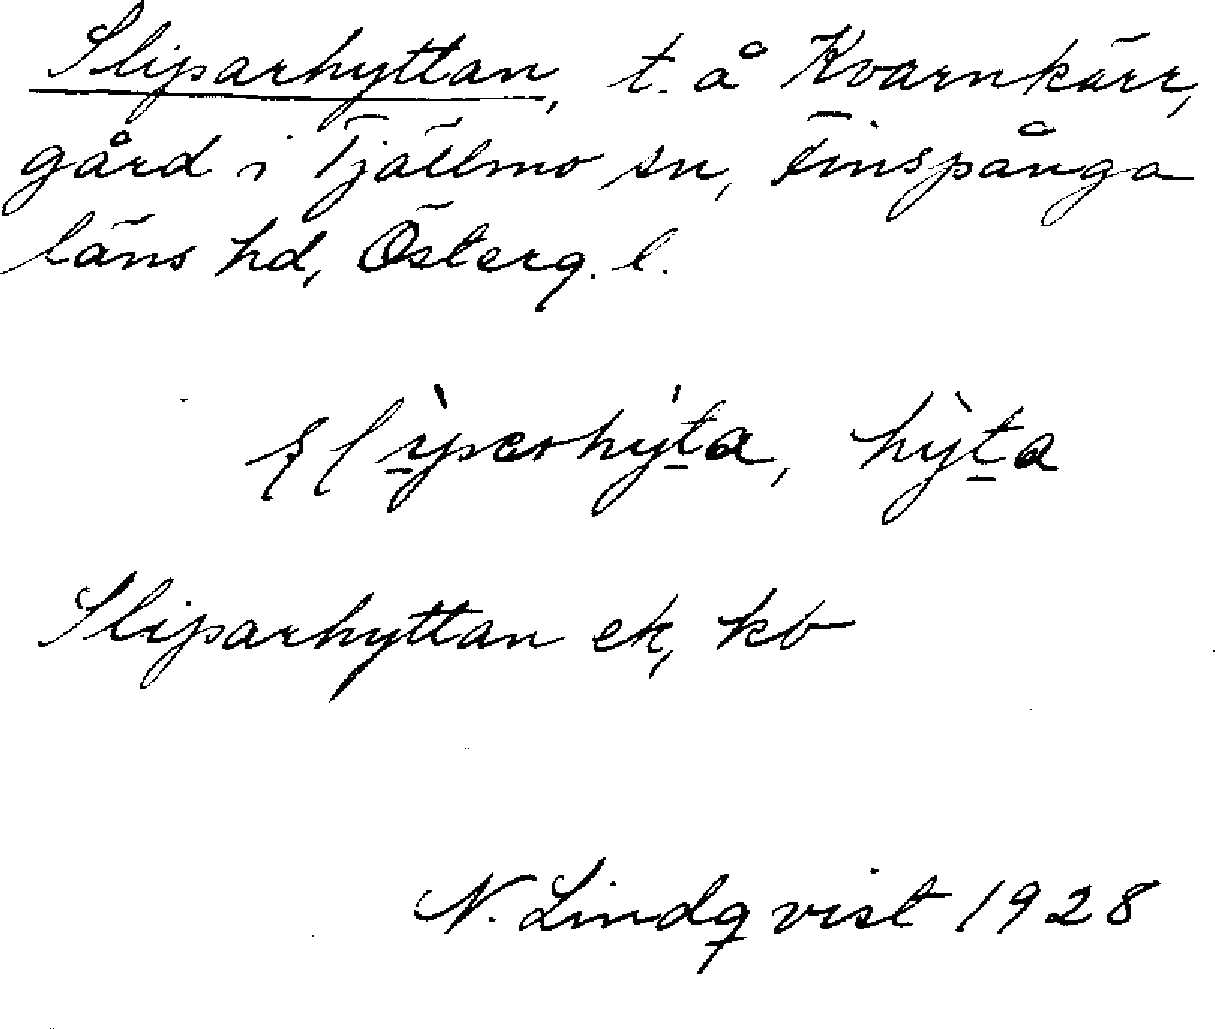 Sliparhyttan, t. å Kvarnkärr,
gård i Tjällmo sn, Finspånga
läns hd, Österg. l.
Sliparhyttan ek, kb
N. Lindqvist 1928